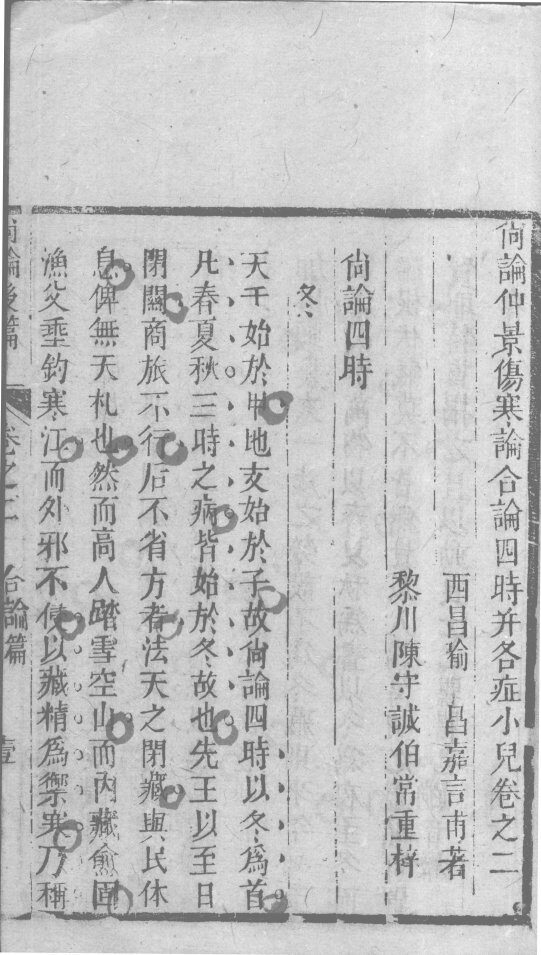 尙論仲景傷寒論合論四時并各症小兒卷之二
西昌喻　昌嘉言甫著
黎川陳守誠伯常重梓
尙論四時
冬
天干始於甲地支始於子故尙論四時以冬爲首
凡春夏秋三時之病皆始於冬故也先王以至日
閉關商旅不行后不省方者法天之閉藏與民休
息俾無夭札也然而高人踏雪空山而內藏愈固
漁父垂釣寒江而外邪不侵以藏精爲禦寒乃稱
尙論後篇
卷之二
合論篇
壹